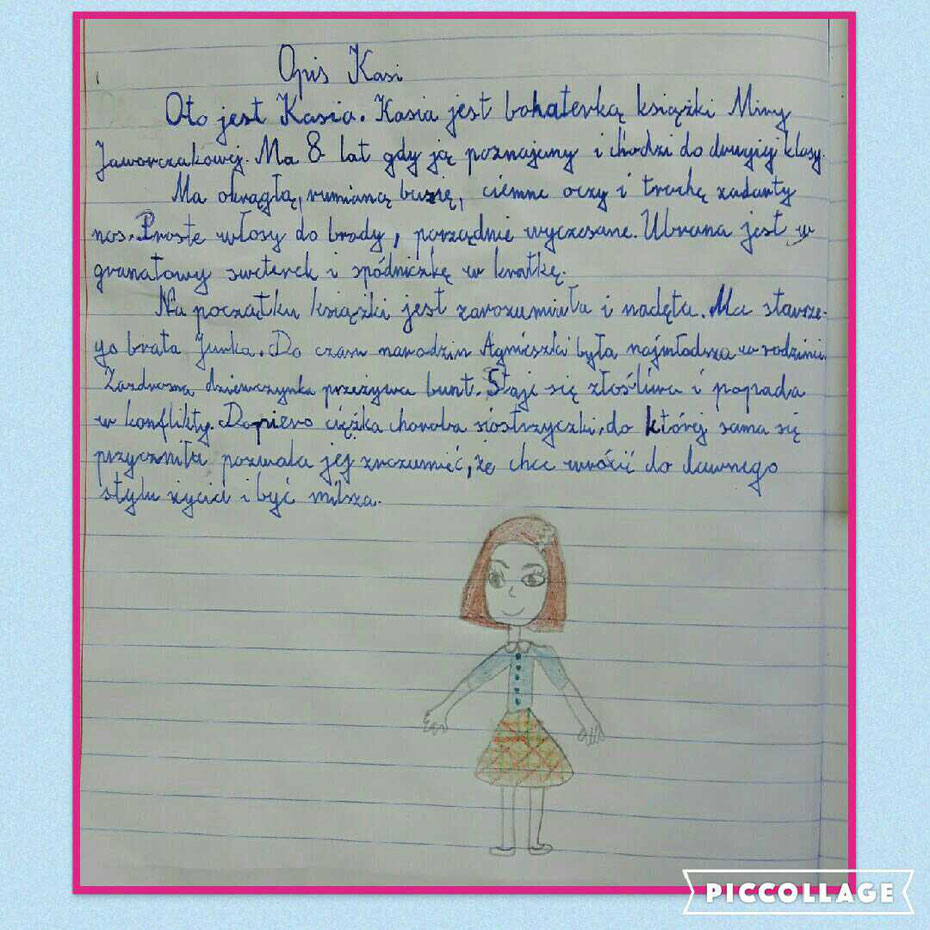 Opis Kasi
Oto jest Kasia. Kasia jest bohaterką książki Miry
Jaworczakowej. Ma 8 lat gdy ją poznajemy i chodzi do drugiej klasy.
Ma okrągłą, rumianą buzię, ciemne oczy i trochę zadarty
nos. Proste włosy do brody, porządnie wyczesane. Ubrana jest w
granatowy sweterek i spódniczkę w kratkę.
Na początku książki jest zarozumiała i nadęta. Ma starsze-
go brata Jurka. Do czasu narodzin Agnieszki była najmłodsza w rodzinie.
Zazdrosna dziewczynka przeżywa bunt. Staje się złośliwa i popada
w konflikty. Dopiero ciężka choroba siostrzyczki, do której sama się
przyczniła pozwala jej zrozumieć, że chce wrócić do dawnego
stylu życia i być milsza.
PICCOLLAGE